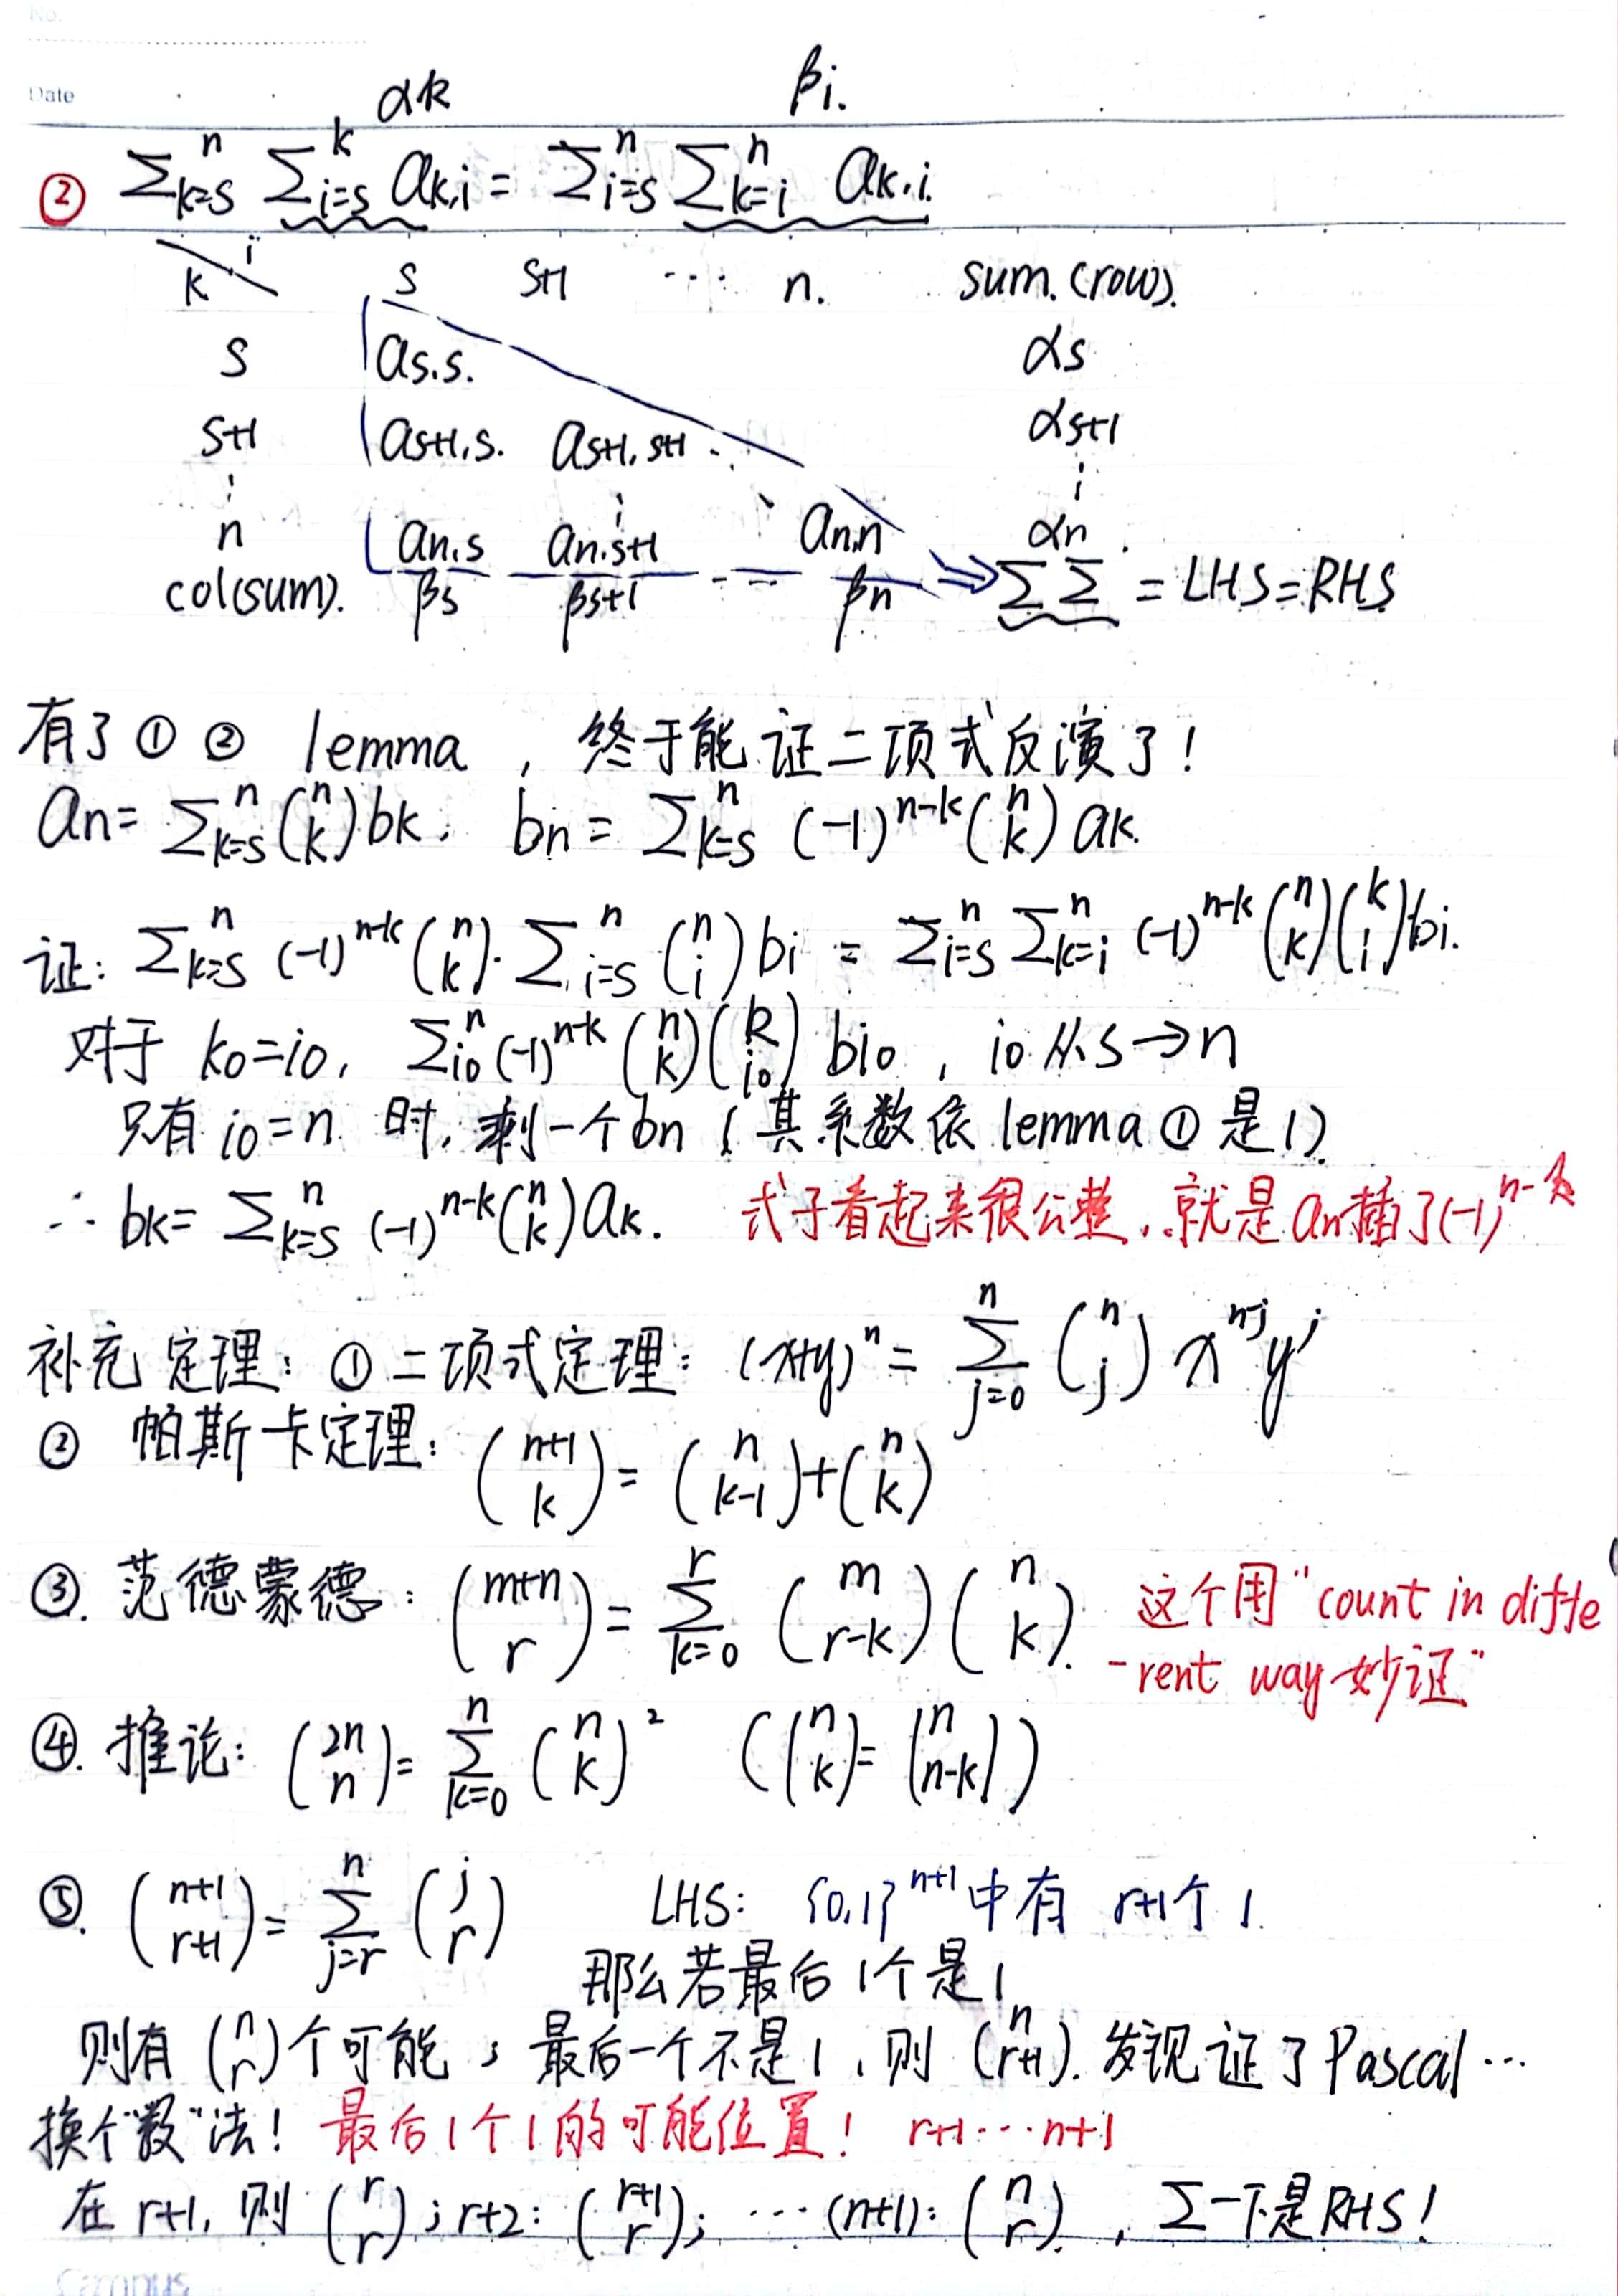 No.
Date
αk βi.
② ∑_{k=s}^{n} ∑_{i=s}^{k} a_{k,i} = ∑_{i=s}^{n} ∑_{k=i}^{n} a_{k,i}.
k \ i s s+1 ... n. sum.(row).
s a_{s.s.} α_s
s+1 a_{s+1,s.} a_{s+1,s+1} α_{s+1}
⋮ ⋮ ⋮
n a_{n,s} a_{n.s+1} a_{n,n} α_n
col(sum). β_s β_{s+1} --- β_n ⇒ ∑∑ = LHS=RHS
有了 ① ② lemma , 终于能证二项式反演了!
a_n = ∑_{k=s}^{n} \binom{n}{k} b_k; b_n = ∑_{k=s}^{n} (-1)^{n-k} \binom{n}{k} a_k.
证: ∑_{k=s}^{n} (-1)^{n-k} \binom{n}{k}· ∑_{i=s}^{n} \binom{n}{i} b_i = ∑_{i=s}^{n} ∑_{k=i}^{n} (-1)^{n-k} \binom{n}{k} \binom{k}{i} b_i.
对于 k_0=i_0, ∑_{i_0}^{n} (-1)^{n-k} \binom{n}{k} \binom{k}{i_0} b_{i_0} , i_0 从 s→n
只有 i_0=n 时, 剩一个 b_n (其系数依 lemma ① 是1).
∴ b_k = ∑_{k=s}^{n} (-1)^{n-k} \binom{n}{k} a_k. 式子看起来很公整, 就是 a_n 插了(-1)^{n-k}
补充定理: ① 二项式定理: (x+y)^n = ∑_{j=0}^{n} \binom{n}{j} x^{n-j} y^j
② 帕斯卡定理: \binom{n+1}{k} = \binom{n}{k-1} + \binom{n}{k}
③. 范德蒙德: \binom{m+n}{r} = ∑_{k=0}^{r} \binom{m}{r-k} \binom{n}{k}. 这个用"count in diffe
-rent way 妙证"
④. 推论: \binom{2n}{n} = ∑_{k=0}^{n} \binom{n}{k}^2 (\binom{n}{k} = \binom{n}{n-k})
⑤. \binom{n+1}{r+1} = ∑_{j=r}^{n} \binom{j}{r} LHS: {0,1}^{n+1} 中有 r+1个 1.
那么若最后1个是1
则有 \binom{n}{r} 个可能; 最后一个不是1, 则 \binom{n}{r+1}. 发现证了 Pascal...
换个"数"法! 最后1个1的可能位置! r+1...n+1
在 r+1, 则 \binom{r}{r}; r+2: \binom{r+1}{r}; ... (n+1): \binom{n}{r}. , ∑一下是RHS!
Campus